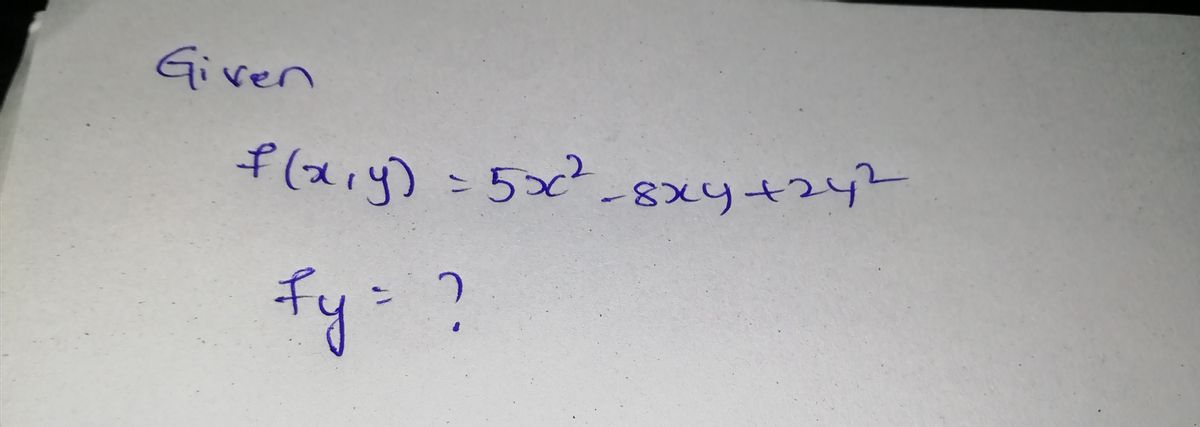 Given
f(x,y) = 5x² - 8xy + 2y²
fy = ?